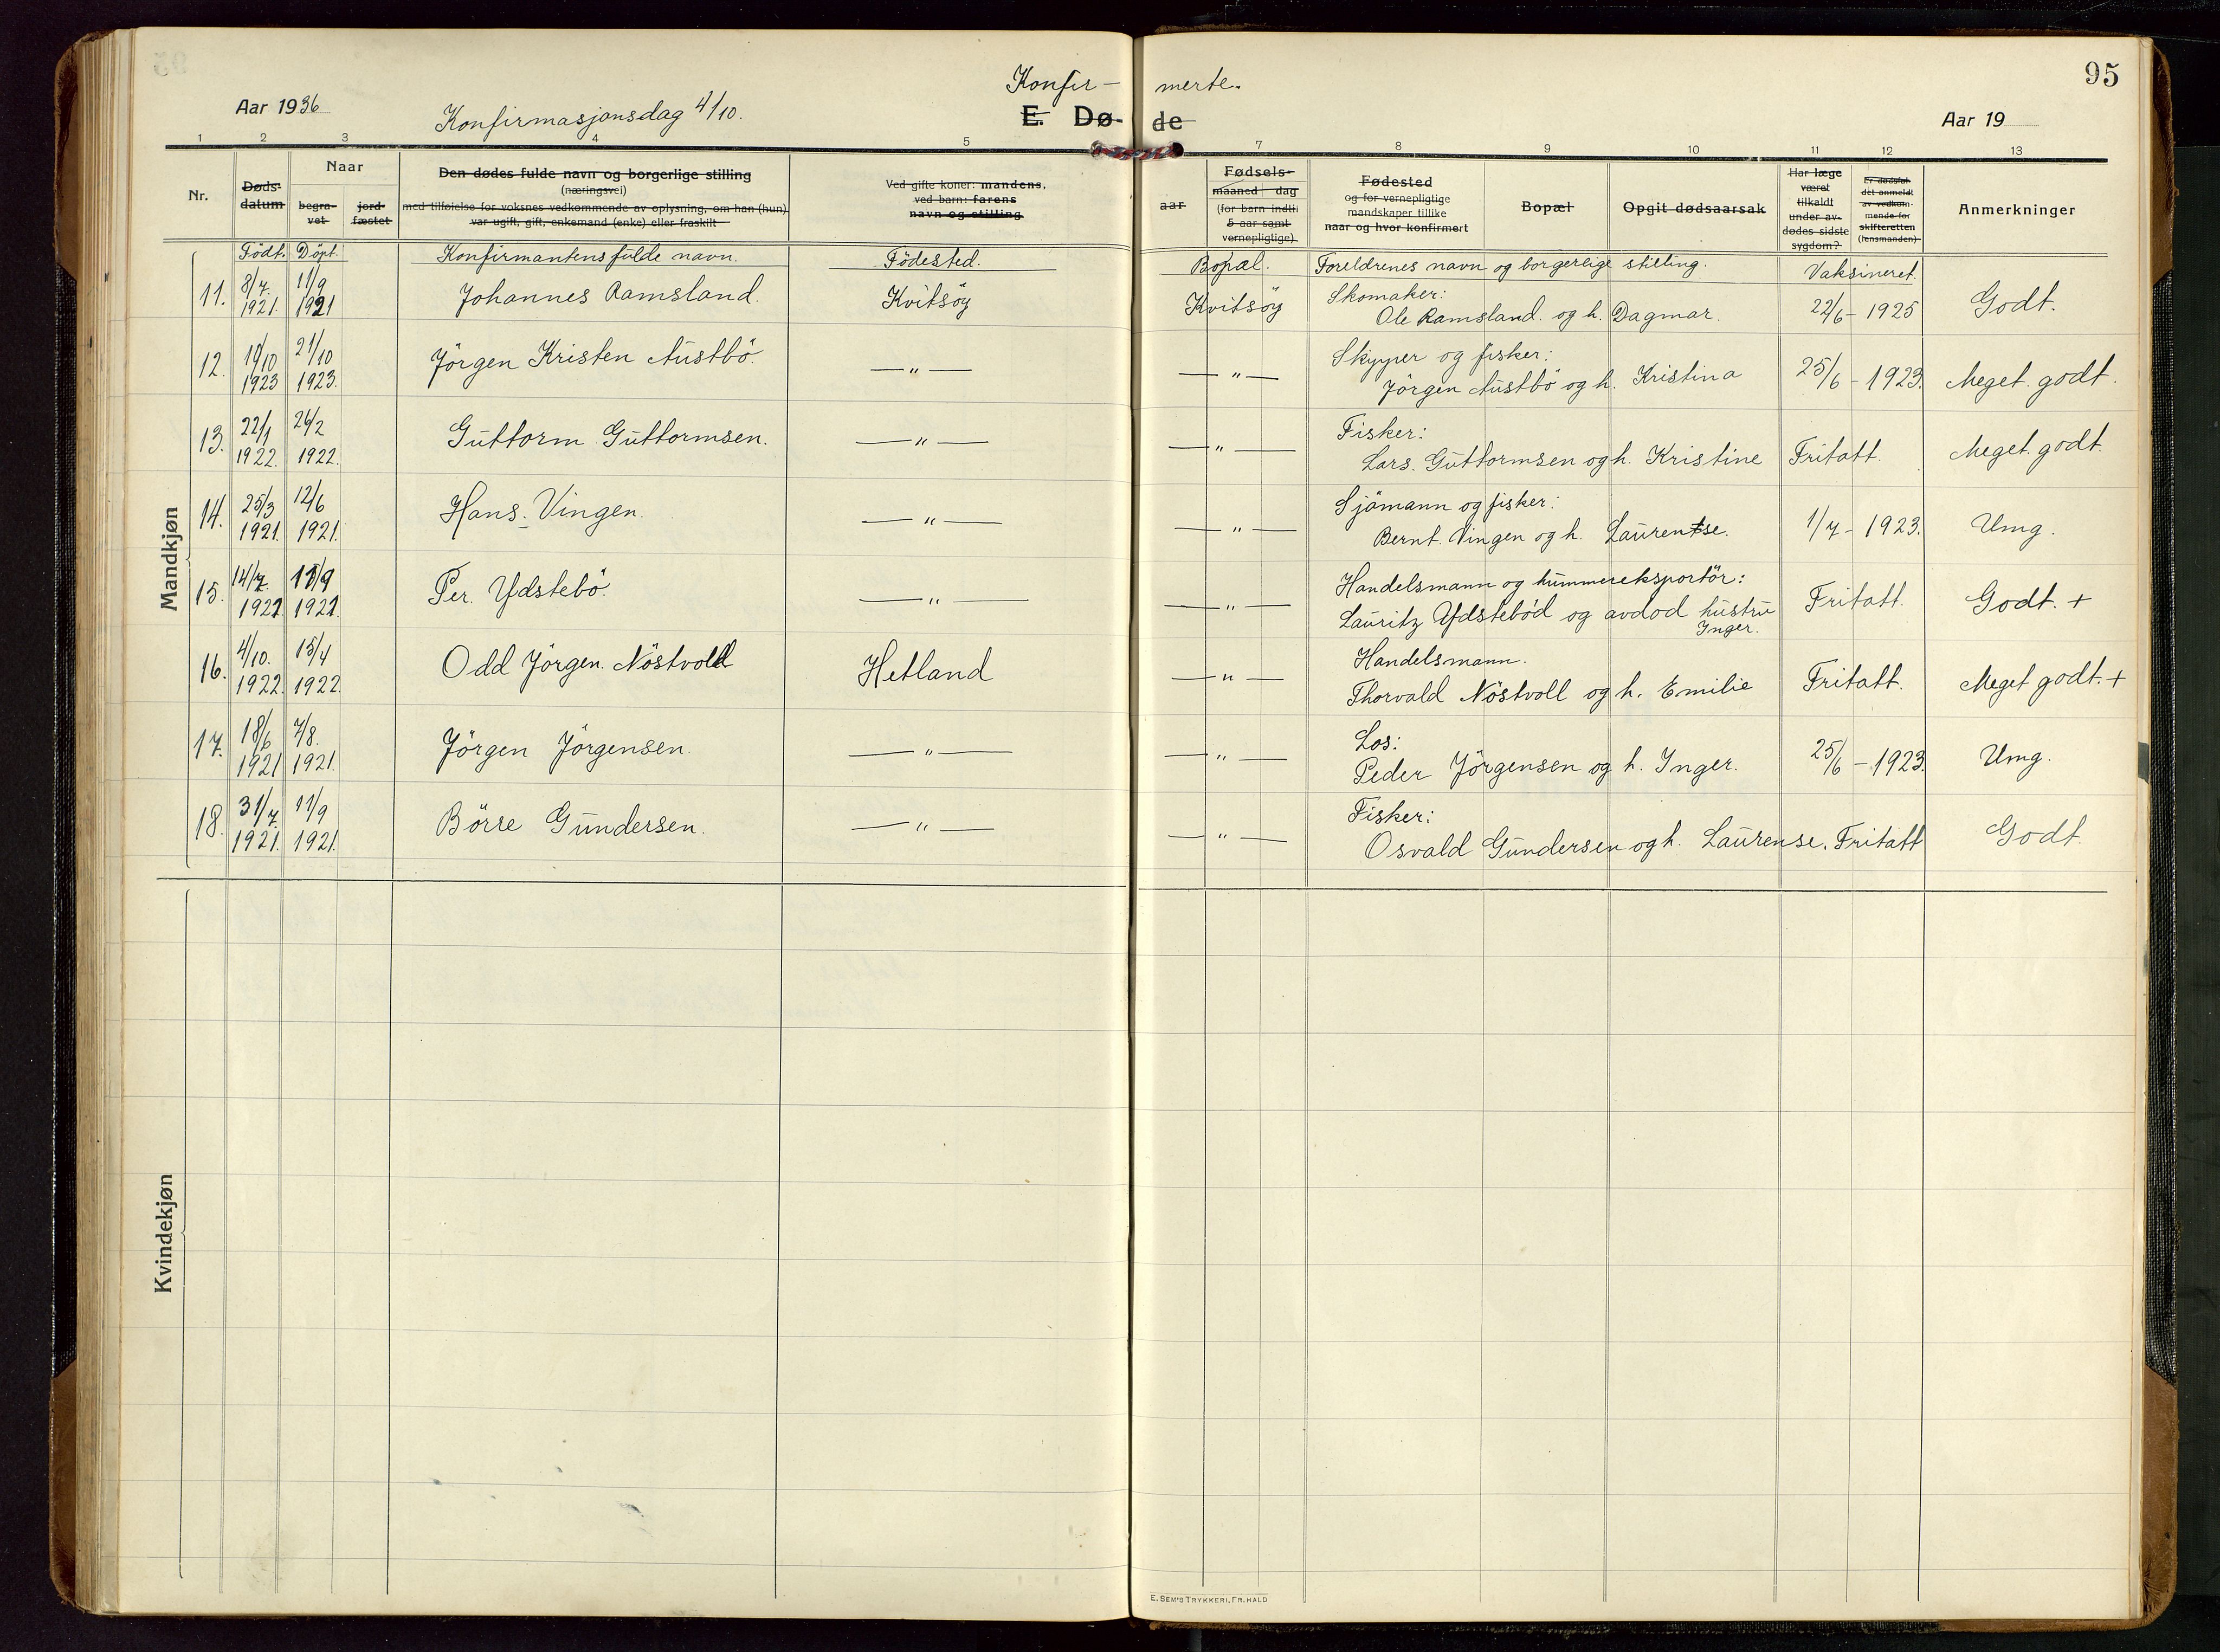 95
Konfir- merte.
Aar 1936
Konfirmasjonsdag 4/10.
E. Dø- de
Aar 19
1 2 3 4 5 7 8 9 10 11 12 13
Nr.
Døds-
datum
Naar
begra-
vet
jord-
fæstet
Den dødes fulde navn og borgerlige stilling
(næringsvei)
med tilføielse for voksnes vedkommende av oplysning, om han (hun)
var ugift, gift, enkemand (enke) eller fraskilt
Ved gifte koner: mandens,
ved barn: farens
navn og stilling
Fødsels-
aar
maaned dag
(for barn indtil
5 aar samt
vernepligtige)
Fødested
og for vernepligtige
mandskaper tillike
naar og hvor konfirmert
Bopæl
Opgit dødsaarsak
Har læge
været
tilkaldt
under av-
dødes sidste
sygdom?
Er dødsfal-
det anmeldt
av vedkom-
mende for
skifteretten
(lensmanden)
Anmerkninger
Födt. Döpt. Konfirmantens fulde navn. Födested. Bopæl. Foreldrenes navn og borgerlige stilling. Vaksineret.
Mandkjøn
11. 8/7. 1921. 11/9 1921 Johannes Ramsland. Kvitsöy Kvitsöy Skomaker:
Ole Ramsland. og h. Dagmar. 22/6 - 1925 Godt.
12. 1923 21/10 1923. Jörgen Kristen Austbö. —"— —"— Skipper og fisker:
Jörgen Austbö og h. Kristina 25/6 - 1923. Meget godt.
13. 22/1 1922. 26/2 1922. Guttorm Guttormsen. —"— —"— Fisker:
Lars. Guttormsen og h. Kristine Fritatt. Meget godt.
14. 25/3 1921. 12/6 1921. Hans Vingen. —"— —"— Sjömann og fisker:
Bernt. Vingen og h. Laurentse. 1/7 - 1923. Umg.
15. 14/7. 1921. 1921. Per. Ydstebö. —"— —"— Handelsmann og hummereksportör:
Lauritz Ydstebød og avdød hustru
Inger. Fritatt. Godt. +
16. 4/10. 1922. 15/4 1922. Odd Jörgen. Nöstvold Hetland —"— Handelsmann.
Thorvald Nöstvoll og h. Emilie Fritatt. Meget godt. +
17. 18/6 1921 7/8. 1921. Jörgen Jörgensen. —"— —"— Los:
Peder Jörgensen og h. Inger. 25/6 - 1923. Umg.
18. 31/7. 1921. 11/9 1921. Börre Gundersen. —"— —"— Fisker:
Osvald Gundersen og h. Laurense. Fritatt Godt.
Kvindekjøn
E. SEM'S TRYKKERI, FR. HALD